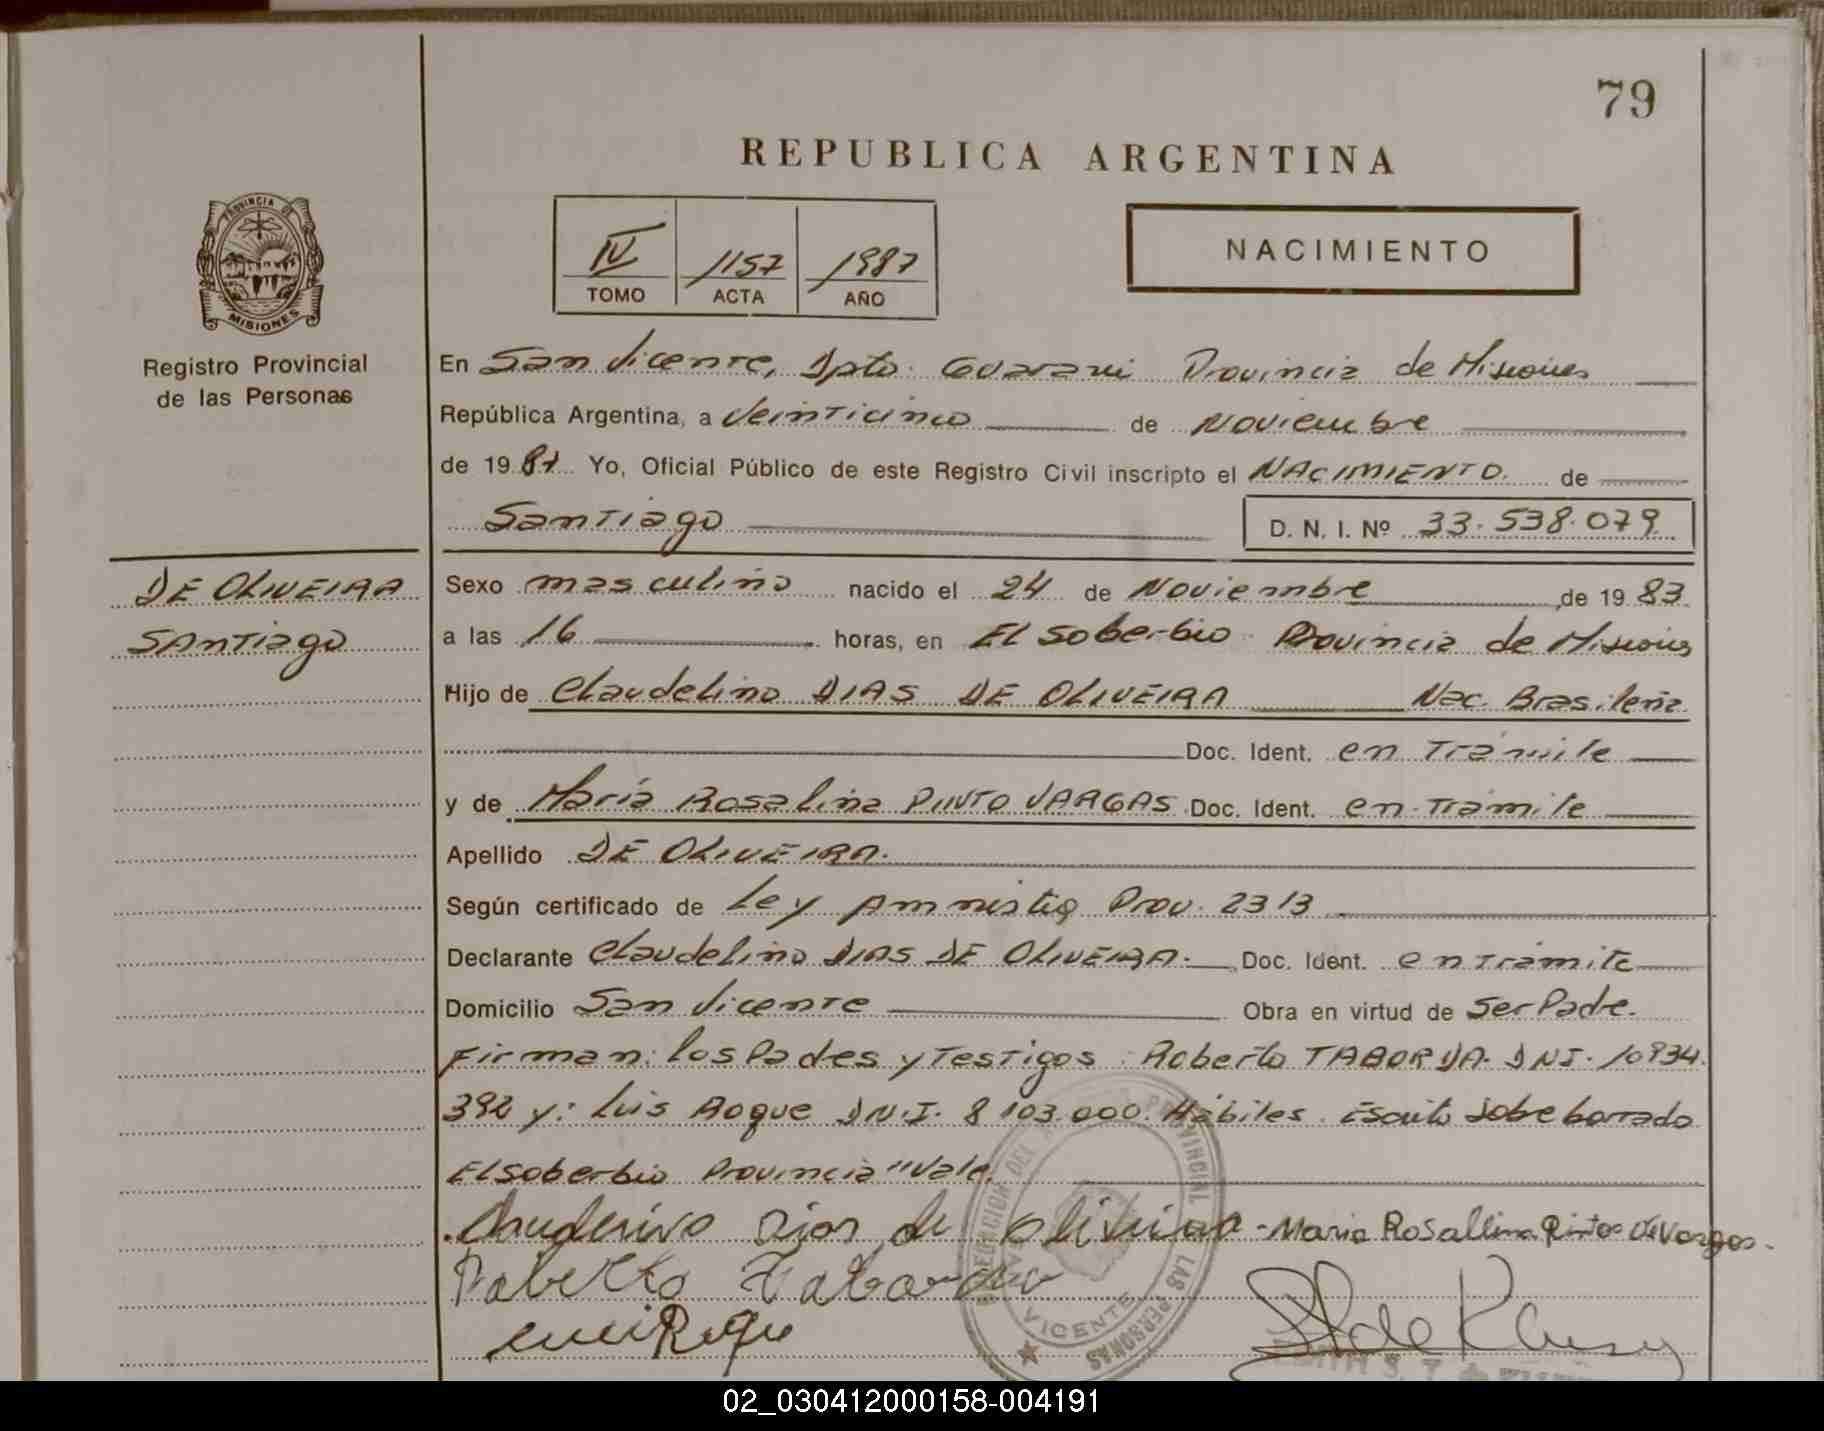 79
REPUBLICA ARGENTINA
PROVINCIA DE
MISIONES
Registro Provincial
de las Personas
IV 1157 1987
TOMO ACTA AÑO
NACIMIENTO
En San Vicente, Dpto. Guarani Provincia de Misiones
República Argentina, a Veinticinco de Noviembre
de 19 87 Yo, Oficial Público de este Registro Civil inscripto el NACIMIENTO. de
Santiago D. N. I. Nº 33.538.079.
DE OLIVEIRA
Santiago
Sexo masculino nacido el 24 de Noviembre de 19 83.
a las 16 horas, en El Soberbio Provincia de Misiones
Hijo de Claudelino DIAS DE OLIVEIRA Nac. Brasileña
Doc. Ident. en Trámite
y de María Rosalina PINTO VARGAS Doc. Ident. en Trámite
Apellido DE OLIVEIRA.
Según certificado de Ley Amnistia Prov. 2313
Declarante Claudelino DIAS DE OLIVEIRA. Doc. Ident. en Trámite
Domicilio San Vicente Obra en virtud de Ser Padre.
Firman: los Pades y Testigos: Roberto TABORDA. DNI. 10934.
392 y: Luis Roque D.N.I. 8 103.000. Hábiles. Escrito sobre borrado
El Soberbio Provincia "Vale.
de oliveira - Maria Rosallina Pintos de Vargas.
Roberto Taborda
Roque
PROVINCIAL
LAS PERSONAS
VICENTE
02_030412000158-004191